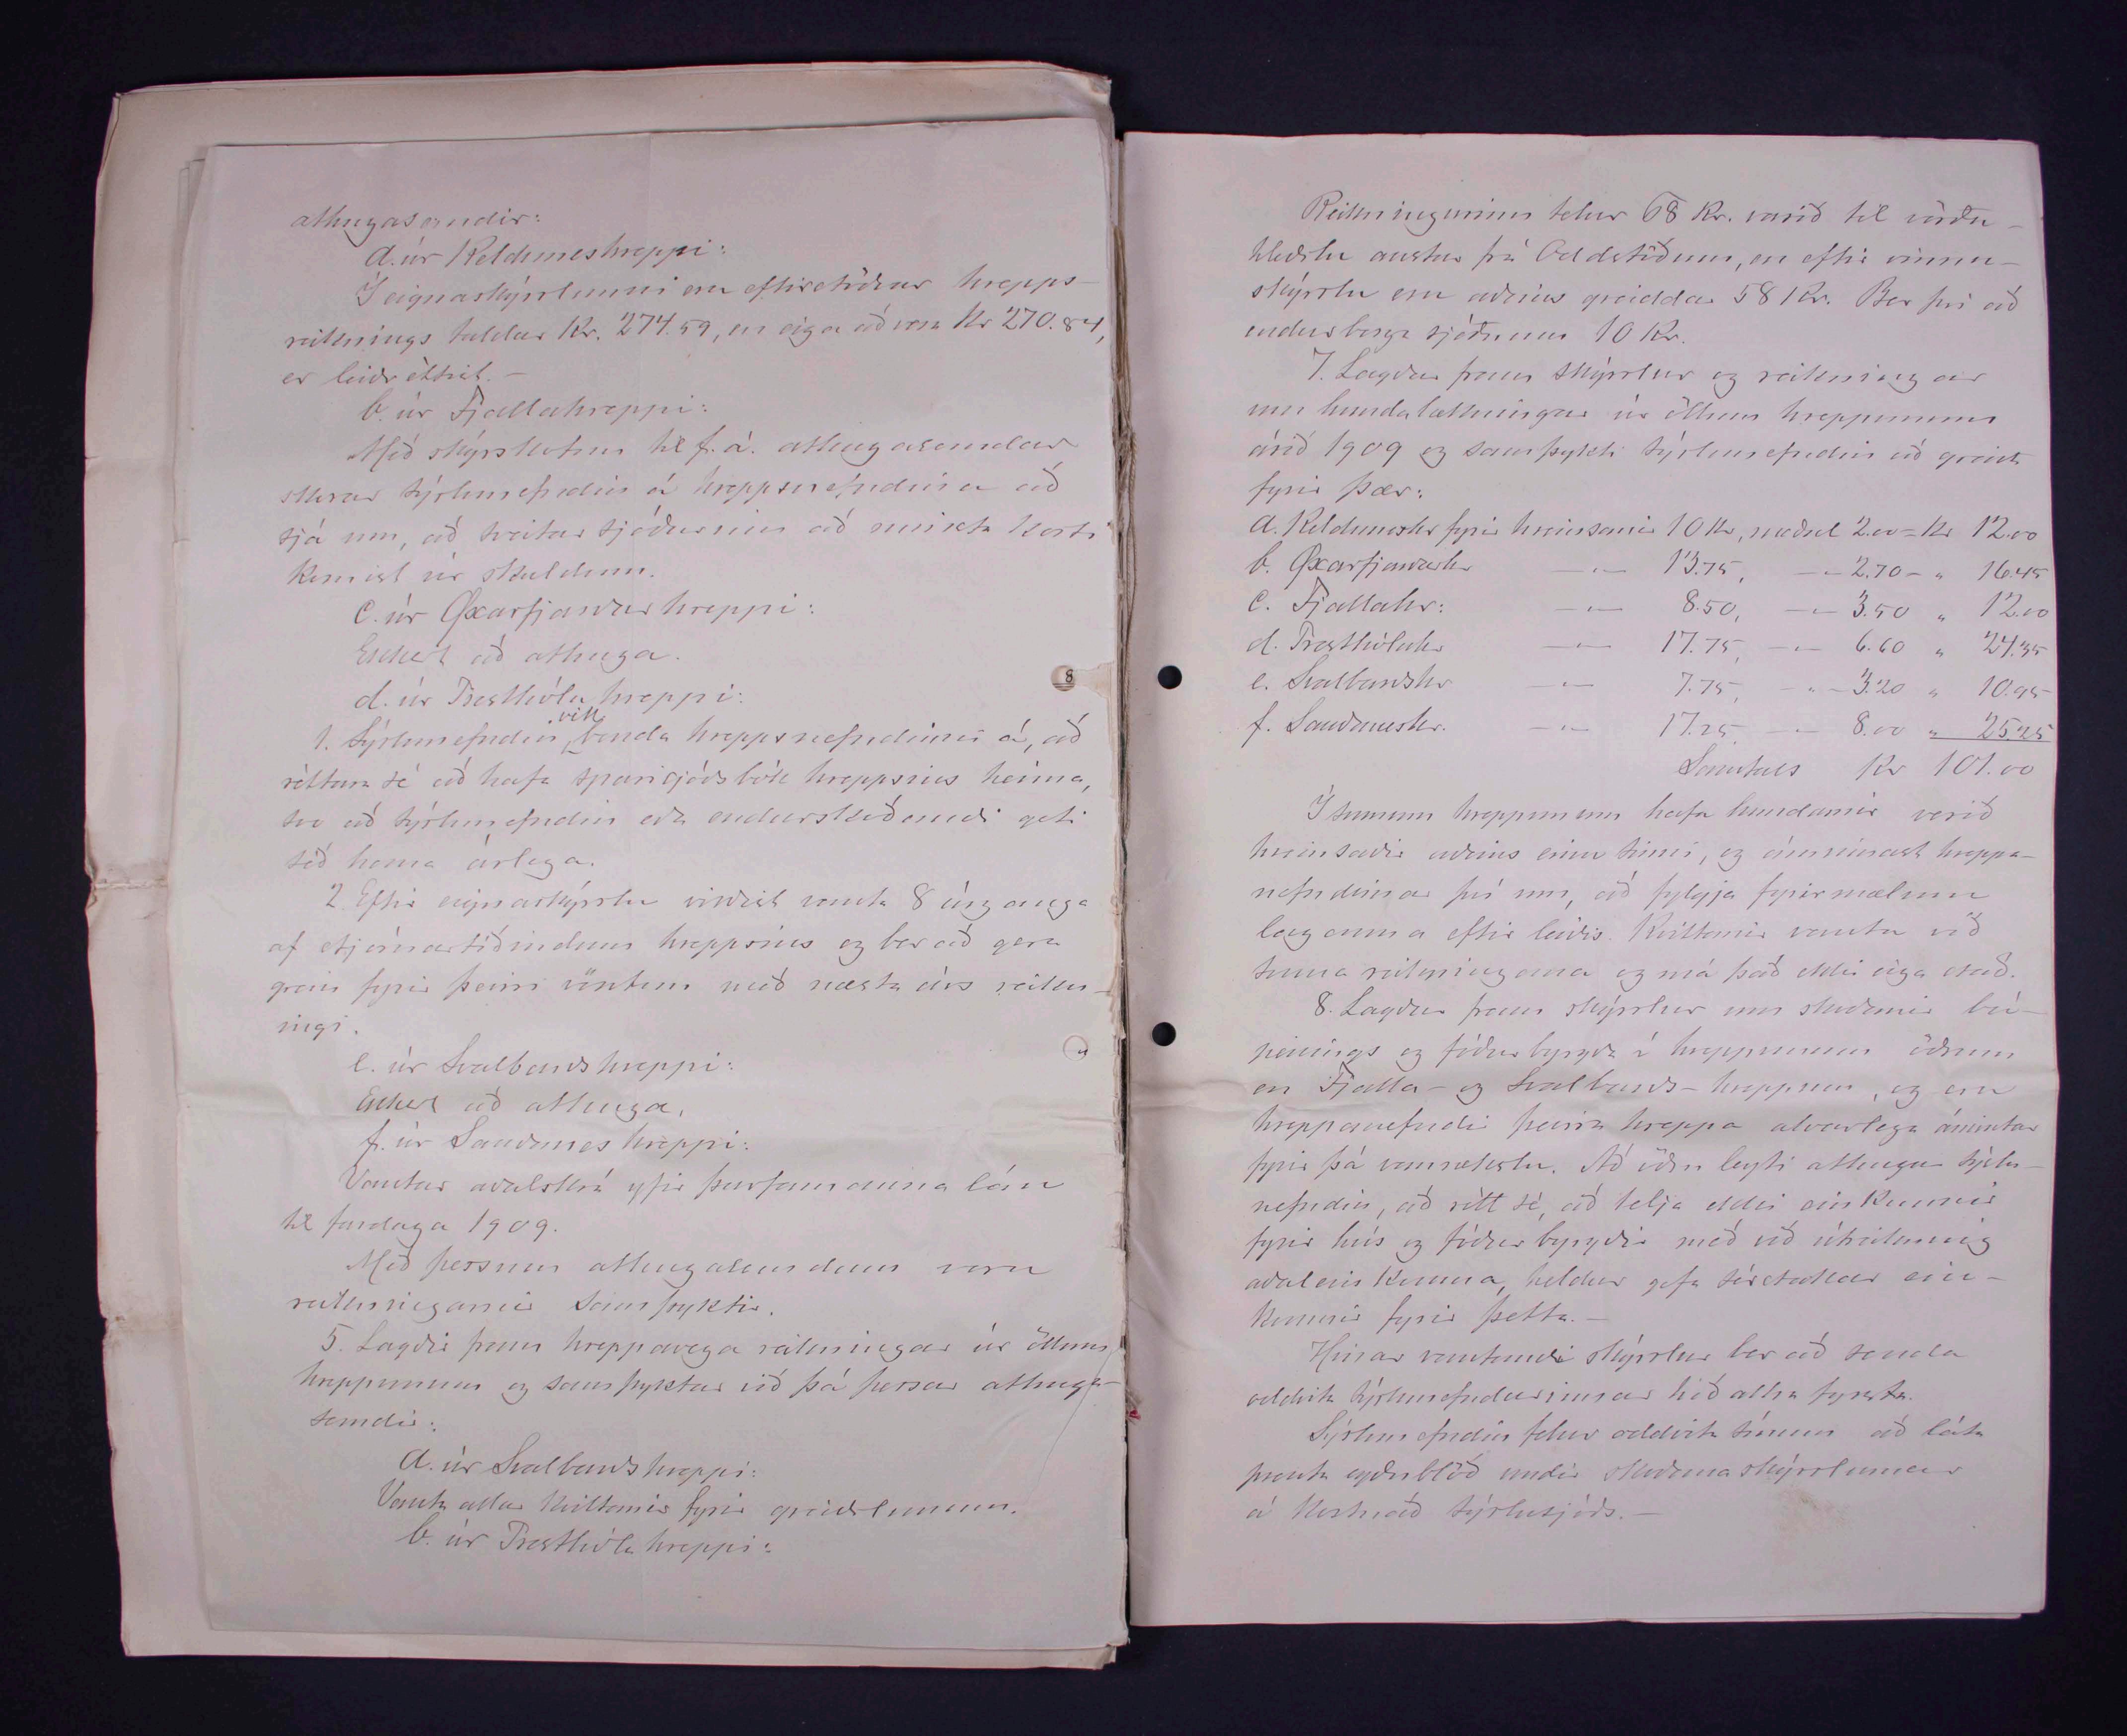 athugasemdir:
a. úr Kelduneshreppi:
Í eignaskýrslunni eru eftirstöðvar hrepps-
reiknings taldar Kr. 274.59, en eiga að vera Kr 270.84,
er leiðréttist. -
b. úr Fjallahreppi:
Með skýrskotun til f. á. athugasemdar
skorar sýslunefndin á hreppsnefndina að
sjá um, að sveitarsjóðurinn að minsta kosti
komist úr skuldum.
c. úr Öxarfjarðarhreppi:
Ekkert að athuga.
d. úr Presthólahreppi:
1. Sýslunefndin vill benda hreppsnefndinni á, að
réttara sé að hafa sparisjóðsbók hreppsins heima,
svo að sýslunefndin eða endurskoðandi geti
séð hana árlega.
2. Eftir eignaskýrslu virðist vanta 8 árganga
af stjórnartíðindum hreppsins og ber að gera
grein fyrir þeirri vöntun með næsta árs reikn-
ingi.
e. úr Svalbarðshreppi:
Ekkert að athuga.
f. úr Sauðaneshreppi:
Vantar aðalskrá yfir þurfamannalán
til fardaga 1909.
Með þessum athugasemdum voru
reikningarnir samþyktir.
5. Lagðir fram hreppavegareikningar úr öllum
hreppunum og samþyktar við þá þessar athuga-
semdir:
a. úr Svalbarðshreppi:
Vanta allar kvittanir fyrir greiðslunum.
b. úr Presthólahreppi:
8
Reikningurinn telur 68 Kr. varið til vörðu-
hleðslu austur frá Oddsstöðum, en eftir vinnu-
skýrslu eru aðeins greiddar 58 Kr. Ber því að
endurborga sjóðnum 10 Kr.
7. Lagðar fram skýrslur og reikningar
um hundalækningar úr öllum hreppunum
árið 1909 og samþykti sýslunefndin að greiða
fyrir þær:
a. Keldunesshr fyrir hreinsanir 10 Kr, meðul 2.00 = Kr 12.00
b. Öxarfjarðarhr -"- 13.75, -"- 2.70 - " 16.45
c. Fjallahr: -"- 8.50, -"- 3.50 " 12.00
d. Presthólahr -"- 17.75, -"- 6.60 " 24.35
e. Svalbarðshr -"- 7.75, -"- 3.20 " 10.95
f. Sauðaneshr. -"- 17.25 -"- 8.00 " 25.25
Samtals Kr 101.00
Í sumum hreppunum hafa hundarnir verið
hreinsaðir aðeins einu sinni, og ámminast hreppa-
nefndirnar því um, að fylgja fyrirmælum
laganna eftirleiðis. Kvittanir vanta við
suma reikningana og má það ekki eiga stað.
8. Lagðar fram skýrslur um skoðanir bú-
penings og fóðurbyrgða í hreppunum öðrum
en Fjalla- og Svalbarðs-hreppum, og eru
hreppanefndir þeirra hreppa alvarlega ámintar
fyrir þá vanrækslu. Að öðru leyti athugar sýslu-
nefndin, að rétt sé, að telja ekki einkunnir
fyrir hús og fóðurbyrgðir með við útreikning
aðaleinkunna, heldur gefa sérstakar ein-
kunnir fyrir þetta. -
Hinar vantandi skýrslur ber að senda
oddvita sýslunefndarinnar hið allra fyrsta.
Sýslunefndin felur oddvita sínum að láta
prenta eyðublöð undir skoðunaskýrslurnar
á kostnað sýslusjóðs. -